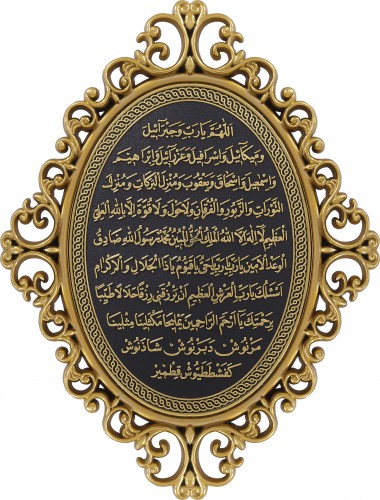 اللهم يارب وجبرآئيل
وميكائيل واسرافيل وعزرائيل وابراهيم
واسمعيل واسحاق ويعقوب ومنزل البركات ومنزل
التورات والزبور والفرقان ولاحول ولا قوة الا بالله العلي
العظيم لا اله الا الله الملك الحق المبين محمد رسول الله صادق
الوعد الامين يارب يارب ياحي ياقيوم ياذا الجلال والاكرام
اسئلك يارب العرش العظيم ان ترزقني رزقا حلالا طيبا
برحمتك يا ارحم الراحمين يمليخا مكثلينا مثلينا
مرنوش دبرنوش شاذنوش
كفشططيوش قطمير